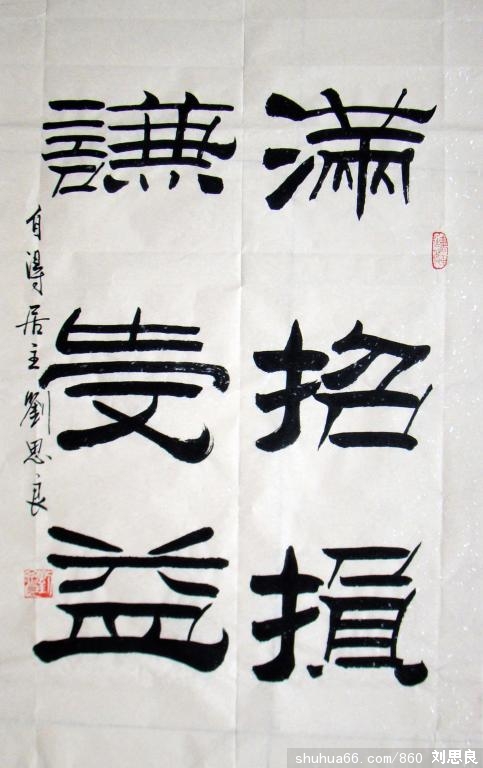 滿招損
謙受益
自得居主劉思良
shuhua66.com/860 刘思良